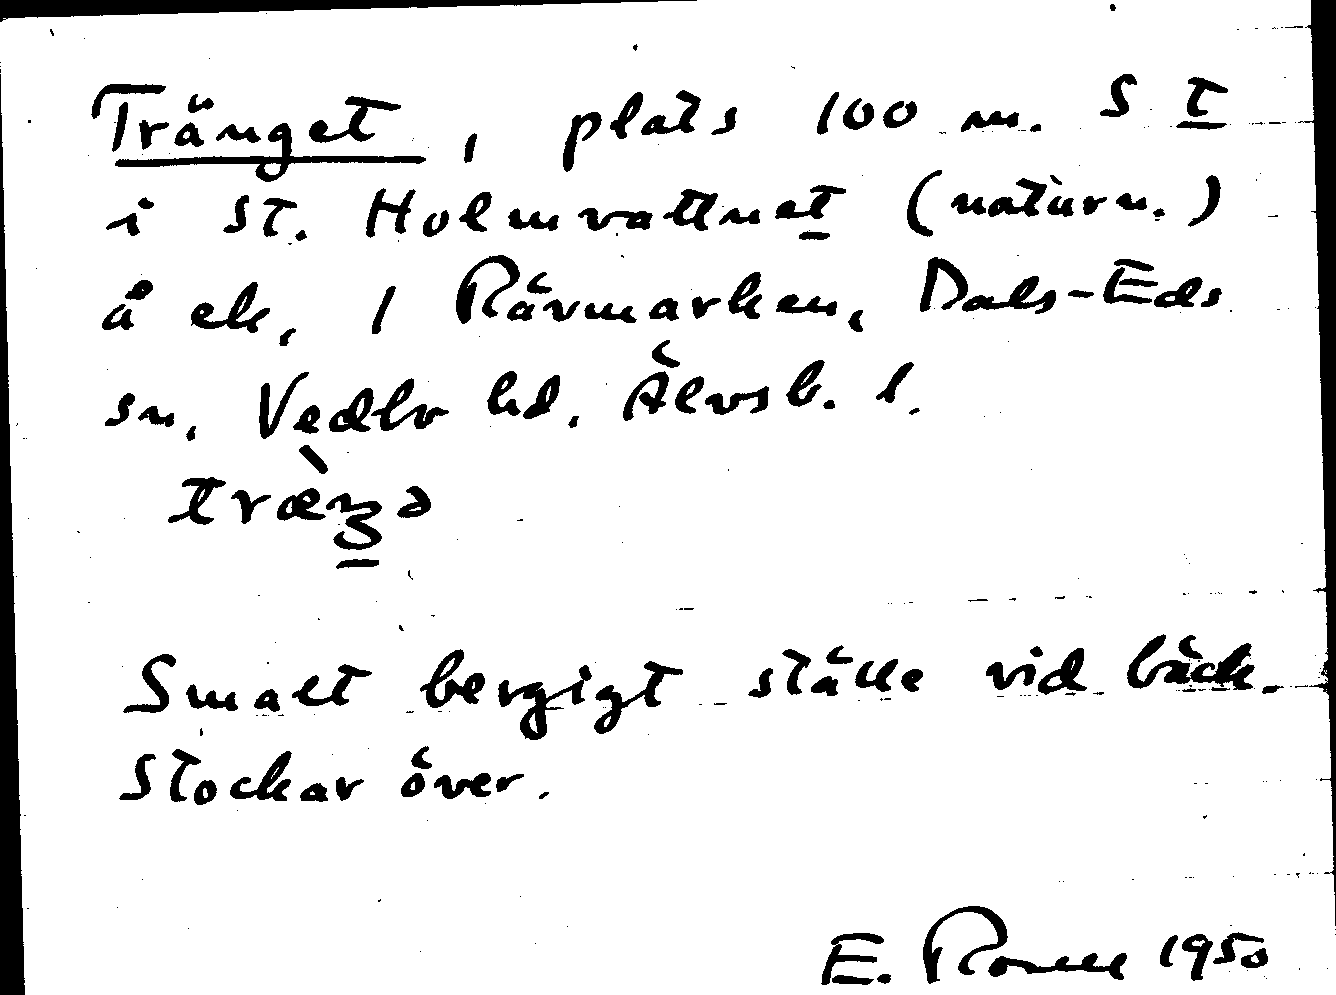 Tränget, plats 100 m. S t
i St. Holmvattnet (naturn.)
å ek. 1 Rävmarken, Dals-Eds
sn. Vedbo hd. Älvsb. l.
træ̀ŋə
Smalt bergigt ställe vid bäck.
Stockar över.
E. 1950